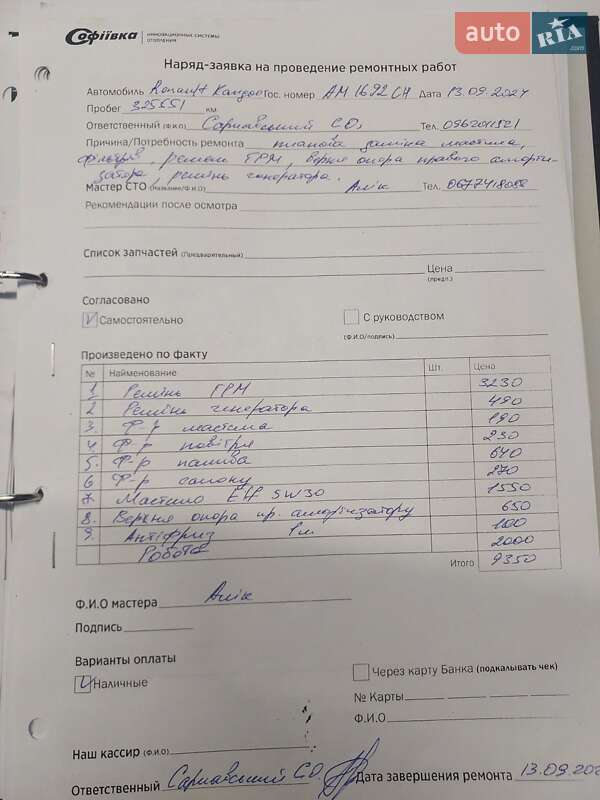 Софіївка ИННОВАЦИОННЫЕ СИСТЕМЫ ОТОПЛЕНИЯ
auto RIA .com
Наряд-заявка на проведение ремонтных работ
Автомобиль Renault Kangoo Гос. номер AM1692CH Дата 13.09.2024
Пробег 325651 км
Ответственный (Ф.И.О) Сарнавський С.О. Тел.
Причина/Потребность ремонта планова заміна мастила,
фільтрів, ремені ГРМ, верхня опора правого аморти-
затора, ремінь генератора.
Мастер СТО (Название/Ф.И.О) Алік Тел.
Рекомендации после осмотра
Список запчастей (Предварительный)
Цена
(предл.)
Согласовано
V Самостоятельно С руководством
(Ф.И.О/подпись)
Произведено по факту
№ Наименование Шт. Цена
1 Ремінь ГРМ 3230
2 Ремінь генератора 490
3. Ф-р мастила 190
4. Ф-р повітря 230
5. Ф-р палива 640
6 Ф-р салону 270
7. Мастило Elf 5W30 1550
8. Верхня опора пр. амортизатору 650
9. Антіфриз 1л. 100
Робота 2000
Итого 9350
Ф.И.О мастера Алік
Подпись
Варианты оплаты
V Наличные Через карту Банка (подкалывать чек)
№ Карты
Ф.И.О
Наш кассир (Ф.И.О)
Ответственный Сарнавський С.О. Дата завершения ремонта 13.09.202